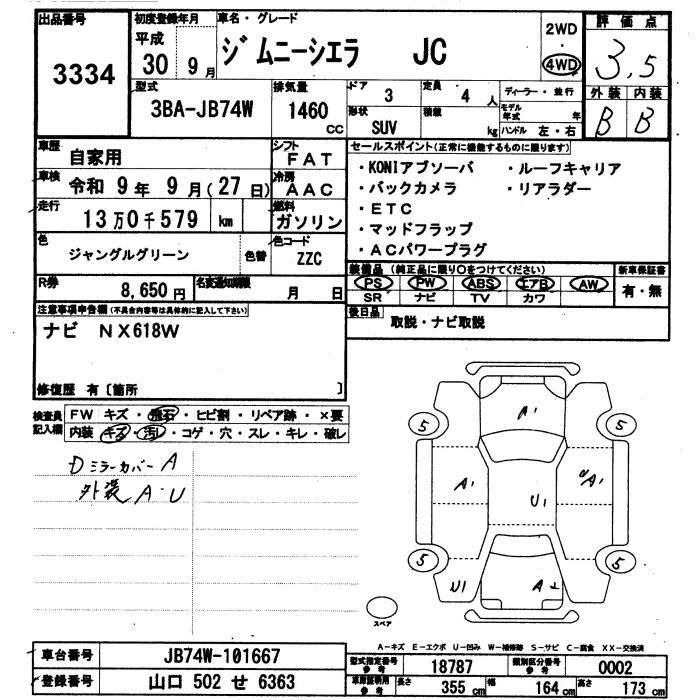 出品番号 3334
初度登録年月 平成 30年 9月
車名・グレード ジムニーシエラ JC
2WD ・ 4WD
評価点 3.5
外装 B 内装 B
型式 3BA-JB74W
排気量 1460 cc
ドア 3
定員 4 人
形状 SUV
積載 kg
ディーラー・並行
モデル年式 年
ハンドル 左・右
車歴 自家用
シフト FAT
車検 令和 9年 9月(27日)
冷房 AAC
走行 13万0千579 km
燃料 ガソリン
色 ジャングルグリーン
色替
色コード ZZC
R券 8,650円
名変通知期限 月 日
セールスポイント(正常に機能するものに限ります)
・KONIアブソーバ ・ルーフキャリア
・バックカメラ ・リアラダー
・ETC
・マッドフラップ
・ACパワープラグ
装備品(純正品に限り○をつけてください) 新車保証書
PS PW ABS エアB AW 有・無
SR ナビ TV カワ
後日品 取説・ナビ取説
注意事項申告欄(不具合内容等は具体的に記入して下さい)
ナビ NX618W
修復歴 有〔箇所 〕
検査員記入欄
FW キズ・飛石・ヒビ割・リペア跡・×要
内装 キズ・汚れ・コゲ・穴・スレ・キレ・破レ
Dミラーカバー A
外装 A・U
A1
5 5
A1 U1 A1
5 5
U1 A2
スペア
A-キズ E-エクボ U-凹み W-補修跡 S-サビ C-腐食 XX-交換済
車台番号 JB74W-101667
登録番号 山口 502 せ 6363
型式指定番号 参考 18787
類別区分番号 参考 0002
車庫証明用 参考 長さ 355 cm 幅 164 cm 高さ 173 cm